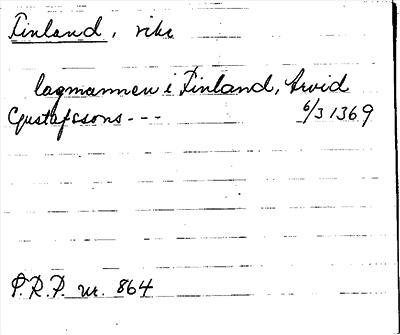 Finland, rike
lagmannen i Finland, Arvid
Gustafssons --- 6/3 1369
P.R.P. nr. 864